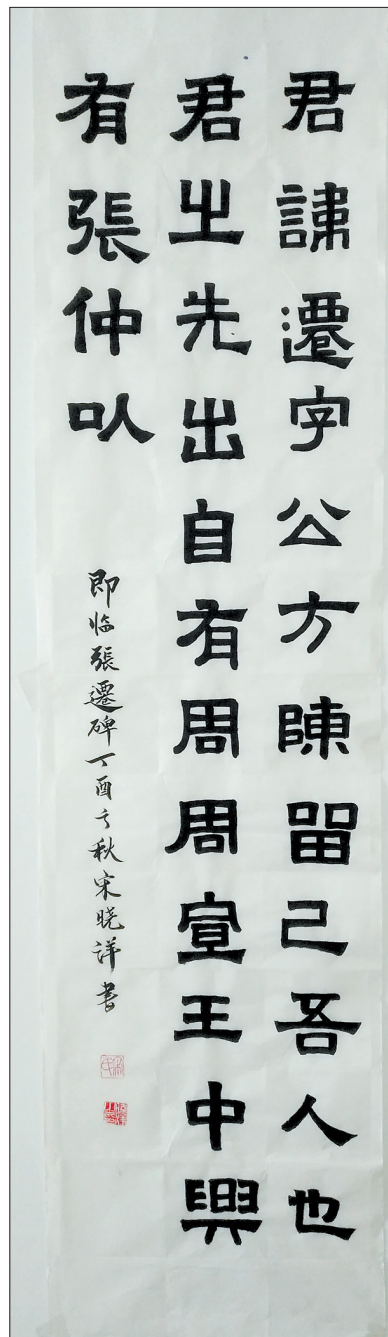 君諱遷字公方陳留己吾人也
君之先出自有周周宣王中興
有張仲以
即临張遷碑丁酉之秋宋晓詳書